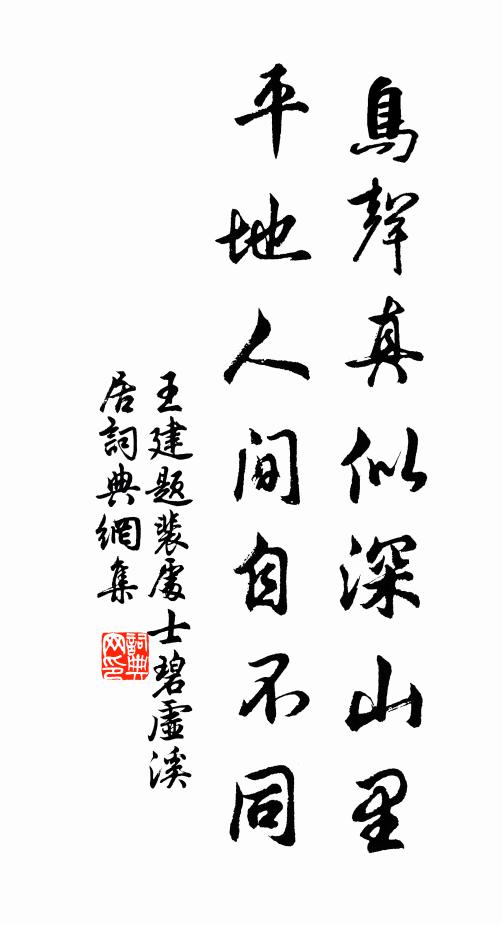 鳥聲真似深山里
平地人間自不同
王建題裴處士碧虛溪
居詞典網集
詞典
网印